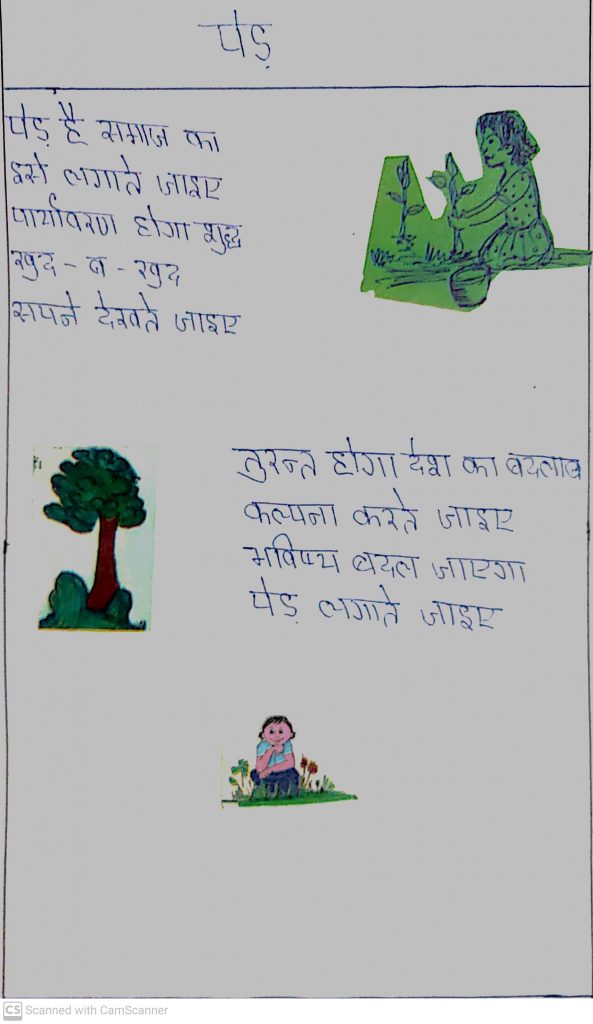 पेड़
पेड़ है समाज का
इसे लगाते जाइए
पार्यावरण होगा शुद्ध
खुद - ब - खुद
सपने देखते जाइए
तुरन्त होगा देश का बदलाव
कल्पना करते जाइए
भविष्य बदल जाएगा
पेड़ लगाते जाइए
CS Scanned with CamScanner